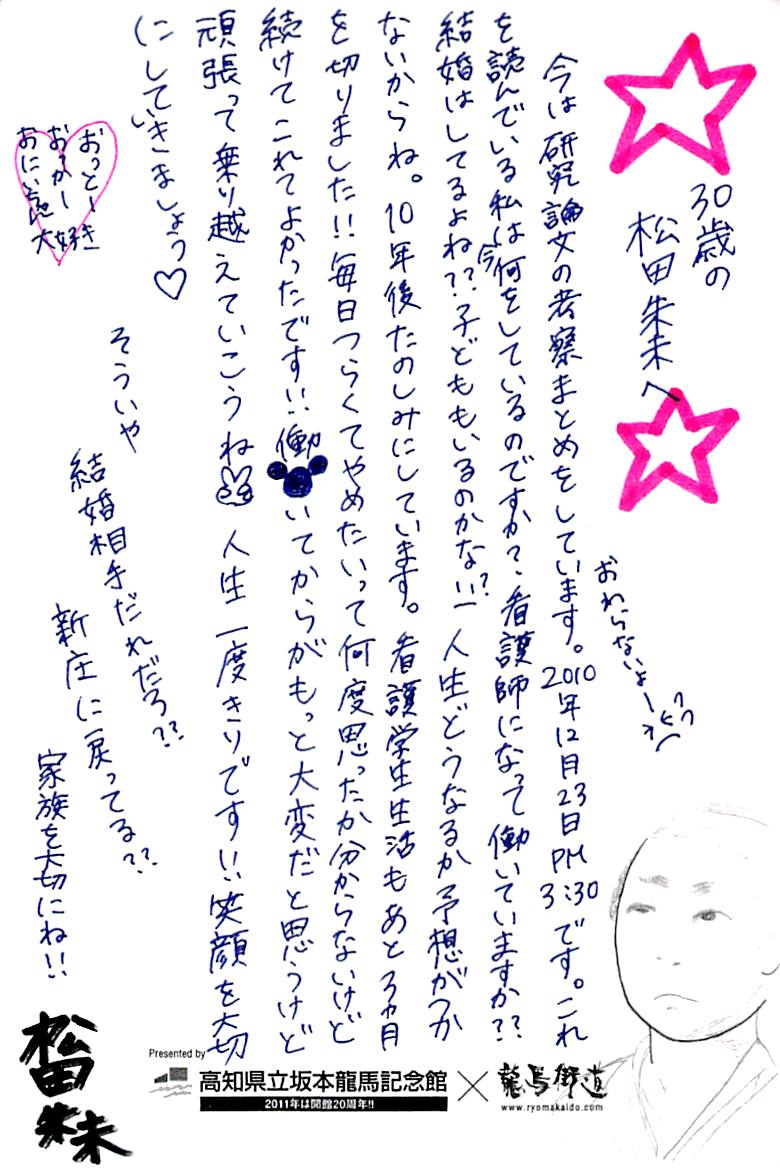 30歳の
松田朱未へ
今は研究論文の考察まとめをしています。2010年12月23日PM3:30です。これ
おわらないよー
を読んでいる私は今何をしているのですか？看護師になって働いていますか??
結婚はしてるよね??子どももいるのかな!!?人生どうなるか予想がつか
ないからね。10年後たのしみにしています。看護学生生活もあと3ヵ月
を切りました!!毎日つらくてやめたいって何度思ったか分からないけど
続けてこれてよかったです!!働いてからがもっと大変だと思うけど
頑張って乗り越えていこうね 人生一度きりです!!笑顔を大切
にしていきましょう♡
おっとー
おっかー
大好き
そういや
結婚相手だれだろ??
新庄に戻ってる??
家族を大切にね!!
松田
朱未
Presented by
高知県立坂本龍馬記念館
2011年は開館20周年!!
×
龍馬街道
www.ryomakaido.com